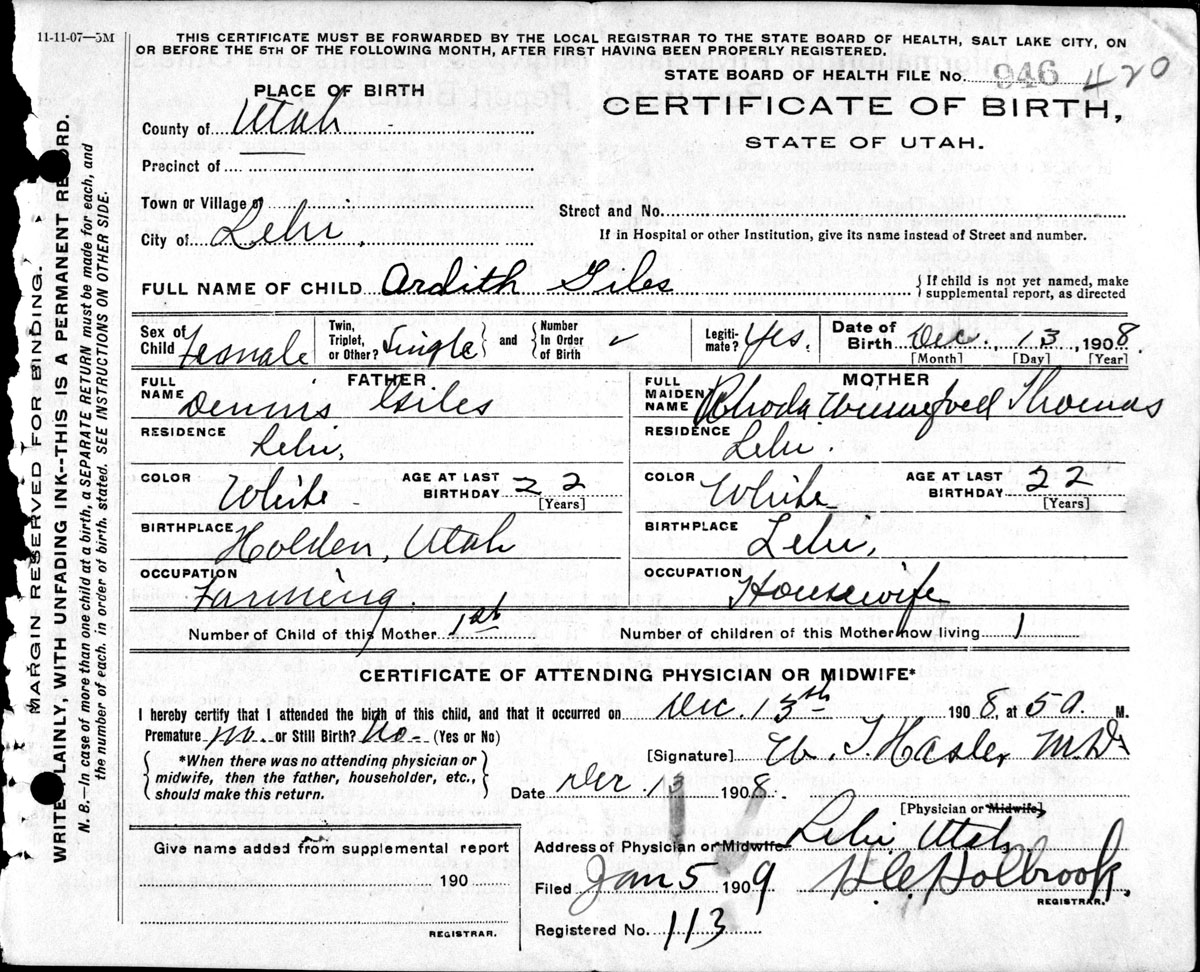 11-11-07—5M
THIS CERTIFICATE MUST BE FORWARDED BY THE LOCAL REGISTRAR TO THE STATE BOARD OF HEALTH, SALT LAKE CITY, ON
OR BEFORE THE 5TH OF THE FOLLOWING MONTH, AFTER FIRST HAVING BEEN PROPERLY REGISTERED.
STATE BOARD OF HEALTH FILE No. 946 420
PLACE OF BIRTH
CERTIFICATE OF BIRTH,
County of Utah
STATE OF UTAH.
Precinct of
Town or Village of
Street and No.
City of Lehi,
If in Hospital or other Institution, give its name instead of Street and number.
FULL NAME OF CHILD Ardith Giles
{If child is not yet named, make
supplemental report, as directed
Sex of Child Female
Twin, Triplet, or Other? Single } and { Number In Order of Birth ✓
Legitimate? Yes.
Date of Birth Dec., 13, 1908
[Month] [Day] [Year]
FATHER
FULL NAME Dennis Giles
MOTHER
FULL MAIDEN NAME Rhoda Thomas
RESIDENCE Lehi,
RESIDENCE Lehi.
COLOR White AGE AT LAST BIRTHDAY 22 [Years]
COLOR White AGE AT LAST BIRTHDAY 22 [Years]
BIRTHPLACE Holden, Utah
BIRTHPLACE Lehi,
OCCUPATION Farming.
OCCUPATION Housewife
Number of Child of this Mother 1st
Number of children of this Mother now living 1
CERTIFICATE OF ATTENDING PHYSICIAN OR MIDWIFE*
I hereby certify that I attended the birth of this child, and that it occurred on Dec. 13th 1908, at 5 a. M.
Premature no. or Still Birth? No. (Yes or No)
[Signature] W. T. Hasler M.D.
{*When there was no attending physician or
midwife, then the father, householder, etc.,
should make this return.}
Date Dec 13 1908
[Physician or Midwife]
Give name added from supplemental report
190
REGISTRAR.
Address of Physician or Midwife Lehi Utah
Filed Jan 5 1909 H.C. Holbrook.
REGISTRAR.
Registered No. 113
MARGIN RESERVED FOR BINDING.
WRITE PLAINLY, WITH UNFADING INK--THIS IS A PERMANENT RECORD.
N. B.—In case of more than one child at a birth, a SEPARATE RETURN must be made for each, and
the number of each, in order of birth, stated. SEE INSTRUCTIONS ON OTHER SIDE.